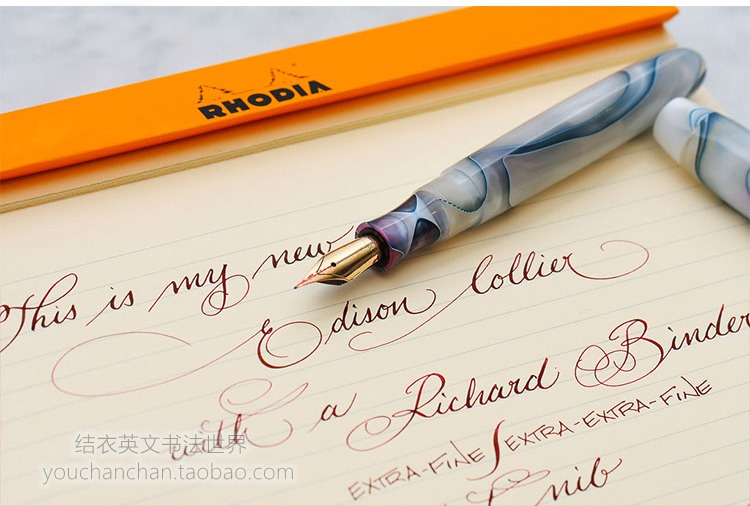 RHODIA
This is my new
Edison Collier
with a Richard Binder
EXTRA-FINE/EXTRA-EXTRA-FINE
nib
结衣英文书法世界
youchanchan.taobao.com